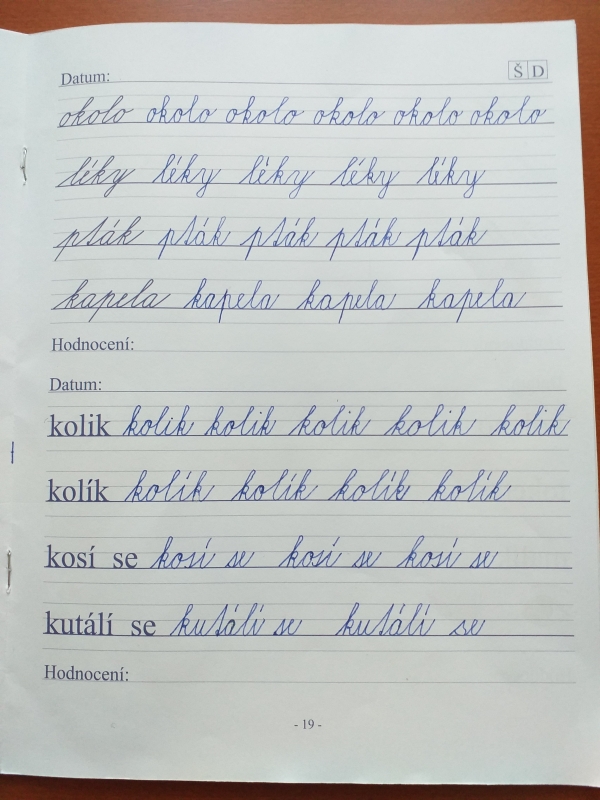 Datum: Š D
okolo okolo okolo okolo okolo okolo
léky léky léky léky léky
pták pták pták pták pták
kapela kapela kapela kapela
Hodnocení:
Datum:
kolik kolik kolik kolik kolik kolik
kolík kolík kolík kolík kolík
kosí se kosí se kosí se kosí se
kutálí se kutálí se kutálí se
Hodnocení:
- 19 -